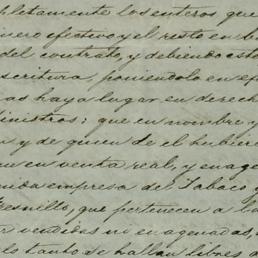 pletamente los enteros que
nero efectivo y el resto en b
del contrato, y debiendo est
scritura, poniéndolo en ef
as haya lugar en derech
inistros: que en nombre y
n y de quien de el hubiere
en venta real, y enage
nida empresa de Tabaco y
resnillo, que pertenecen a la
n vendidas ni enagenadas,
lo tanto se hallan libres d